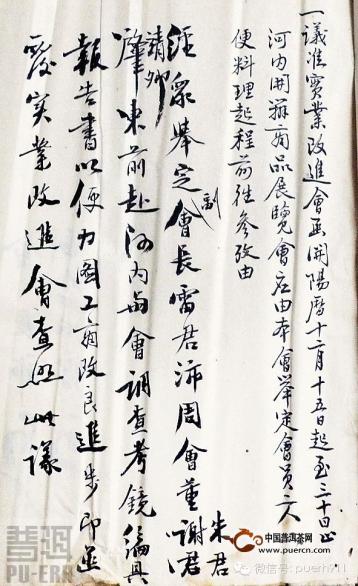 一議准實業改進會函開陽曆十二月十五日起至三十日止
河內開辦商品展覽會應由本會舉定會員二人
便料理起程前往參攷由
經眾舉定副會長雷君沛周會董謝君朱君
靖卿
肇東前赴河內與會調查考鏡編具
報告書以便力圖工商改良進步即送
覆實業改進會查照此議
普洱
PU-ERH
中国普洱茶网
微信号: puerh711